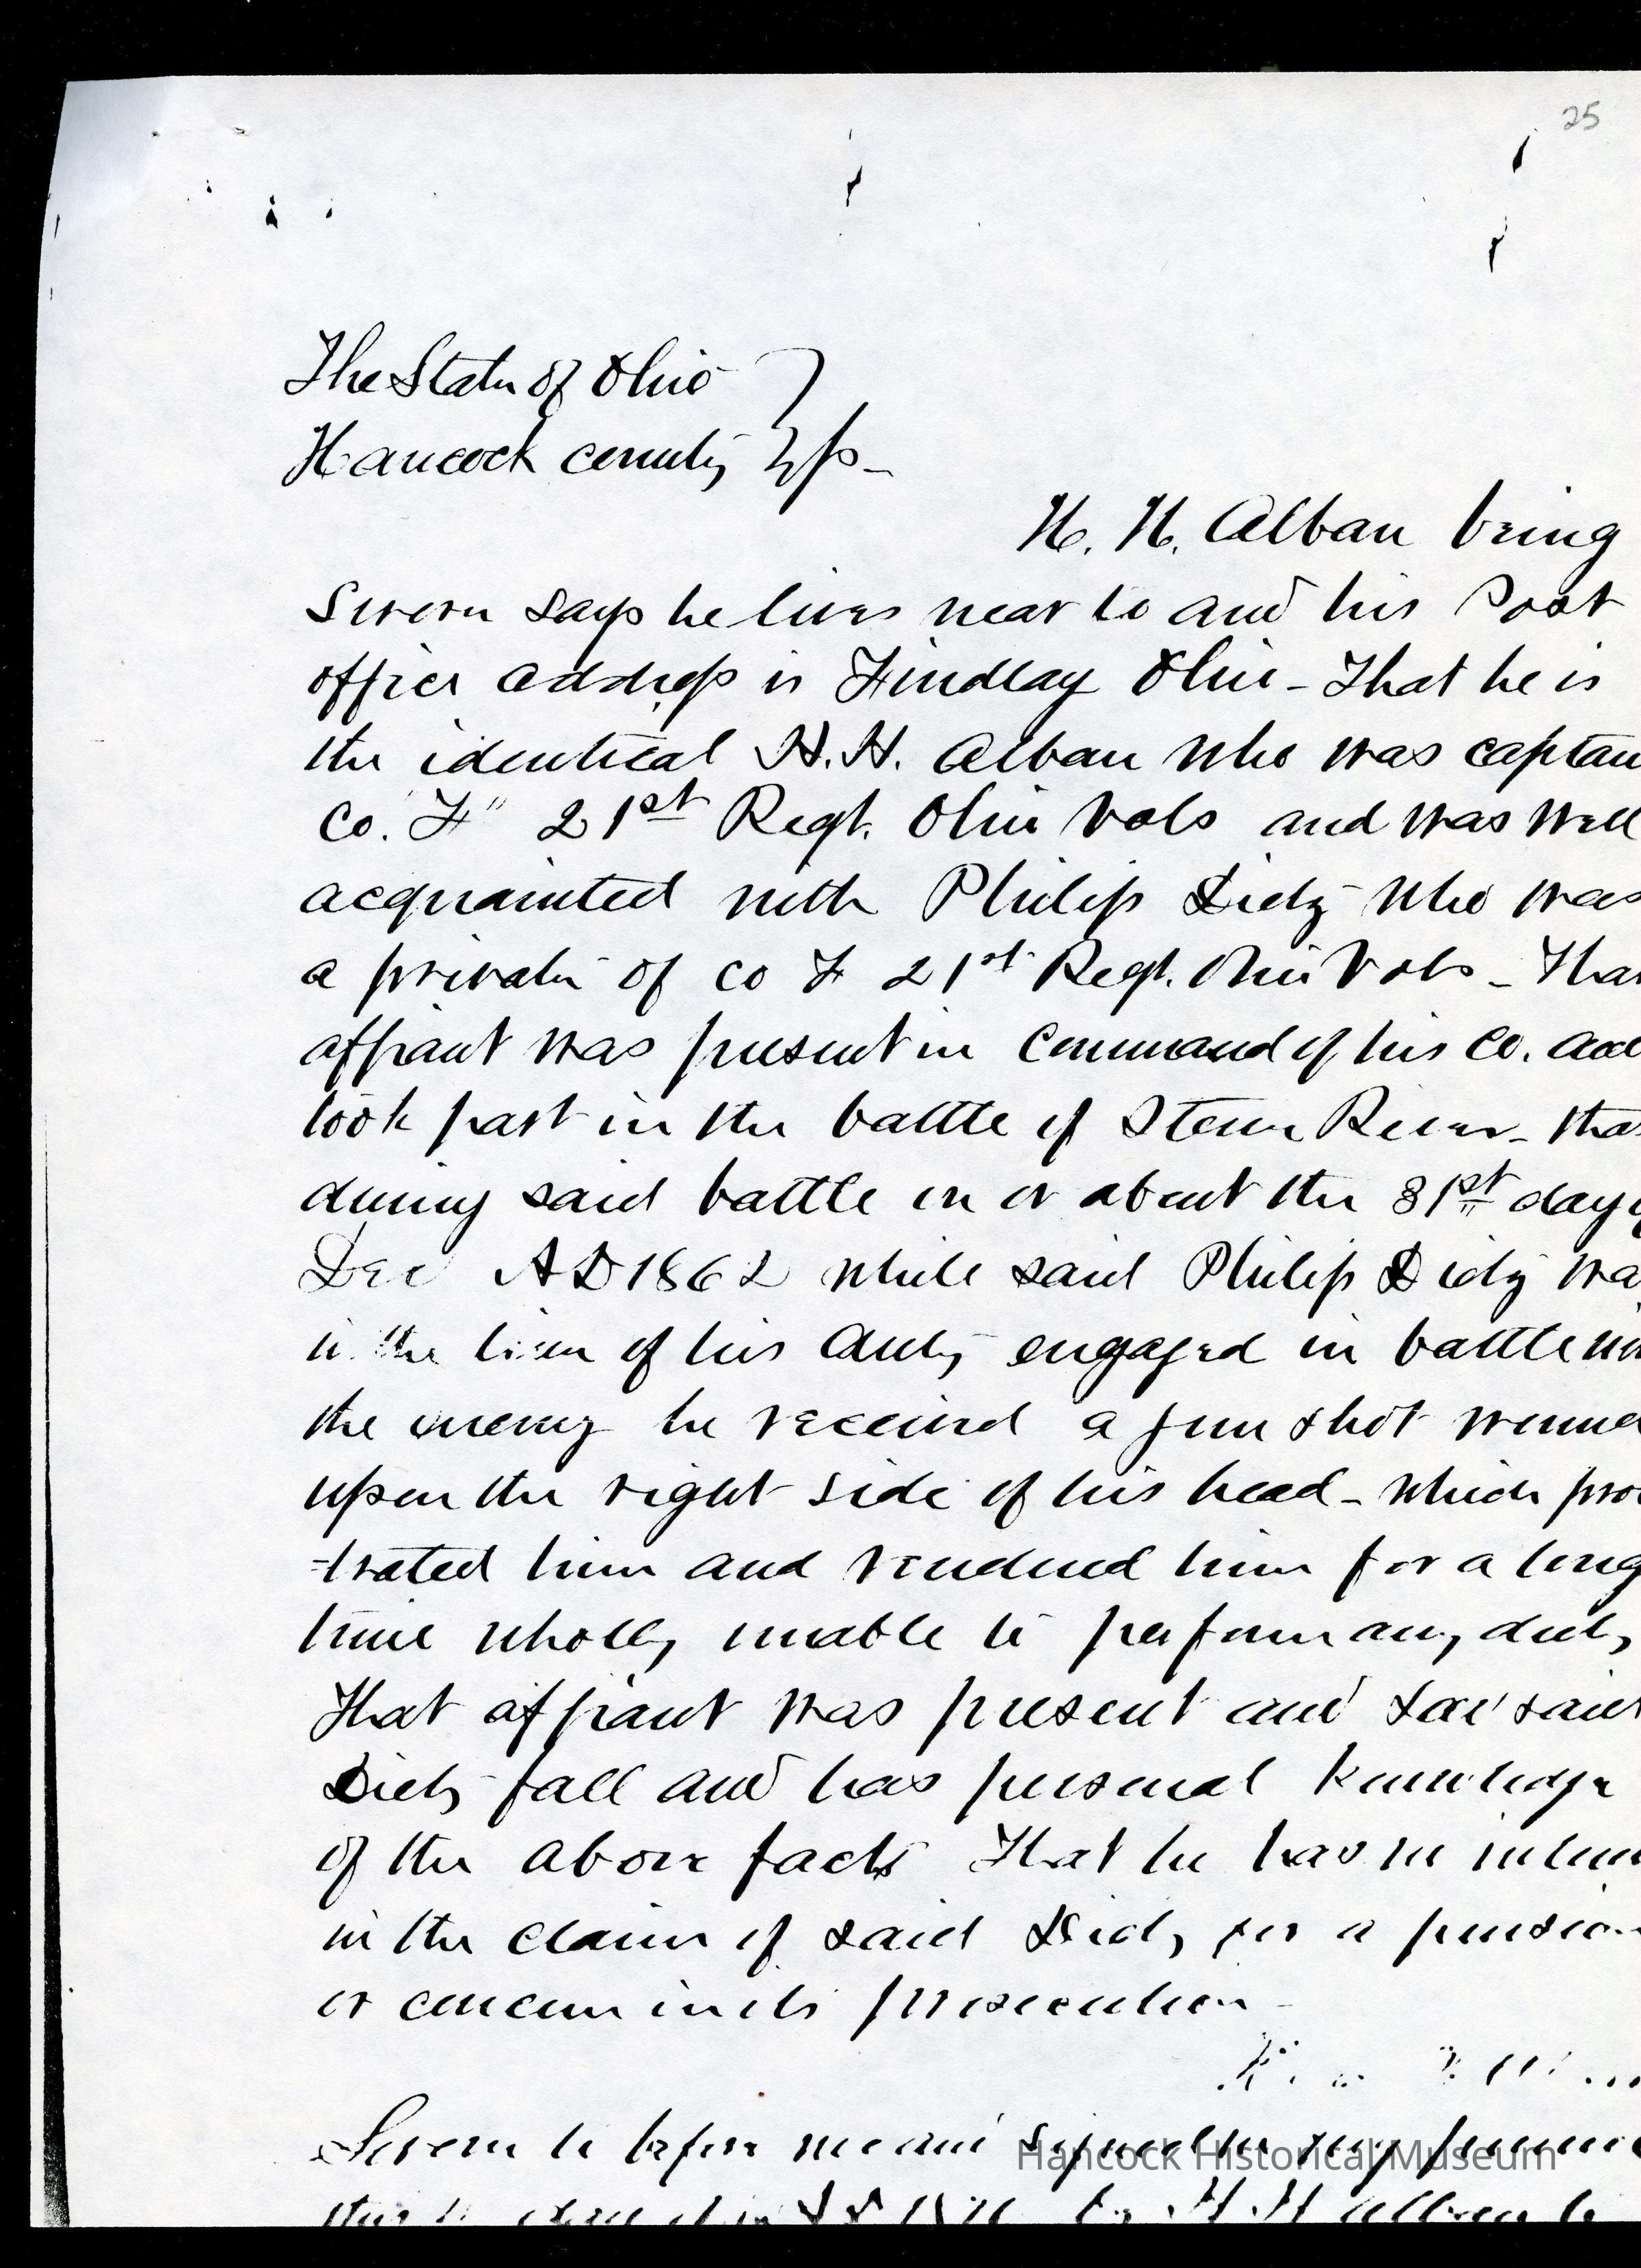 25
The State of Ohio }
Hancock county } ss-
H. H. Alban being
Sworn says he lives near to and his Post
office address is Findlay Ohio - That he is
the identical H. H. Alban who was captain
Co. "F" 21st Regt. Ohio Vols and was well
acquainted with Philip Didy who was
a private of Co F 21st Regt. Ohio Vols - That
affiant was present in command of his Co. and
took part in the battle of Stone River - that
during said battle on or about the 31st day of
Dec AD 1862 while said Philip Didy was
in the line of his duty engaged in battle with
the enemy he received a gun shot wound
upon the right side of his head - which pros
-trated him and rendered him for a long
time wholly unable to perform any duty
That affiant was present and saw said
Didy fall and has personal knowledge
of the above facts That he has no
in the claim of said Didy for a pension
or concern in its prosecution -
Sworn to before me and signed in my
H H Alban
Hancock Historical Museum